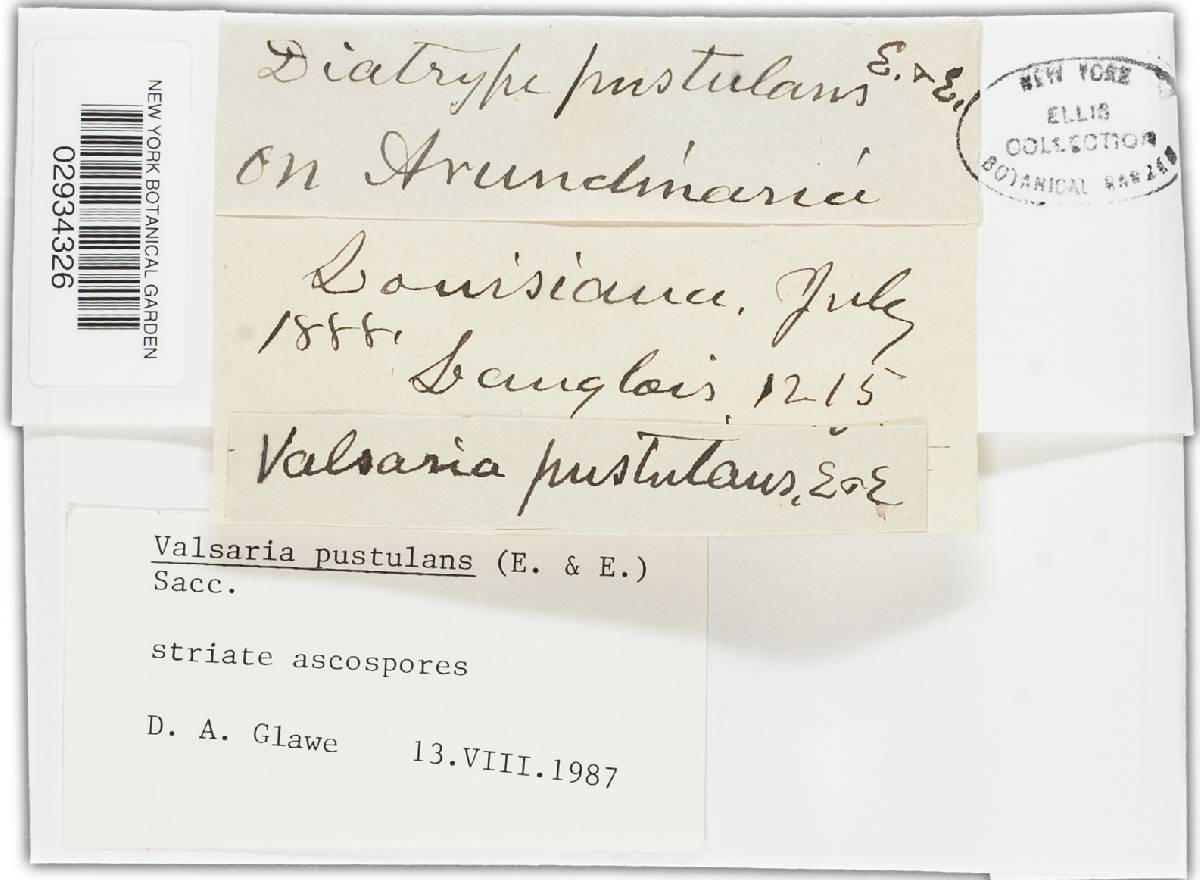 NEW YORK BOTANICAL GARDEN
02934326
Diatrype pustulans E. & E.
on Arundinaria
NEW YORK
ELLIS
COLLECTION
BOTANICAL GARDEN
Louisiana, July
1888.
Langlois, 1215
Valsaria pustulans, E & E
Valsaria pustulans (E. & E.)
Sacc.
striate ascospores
D. A. Glawe 13.VIII.1987